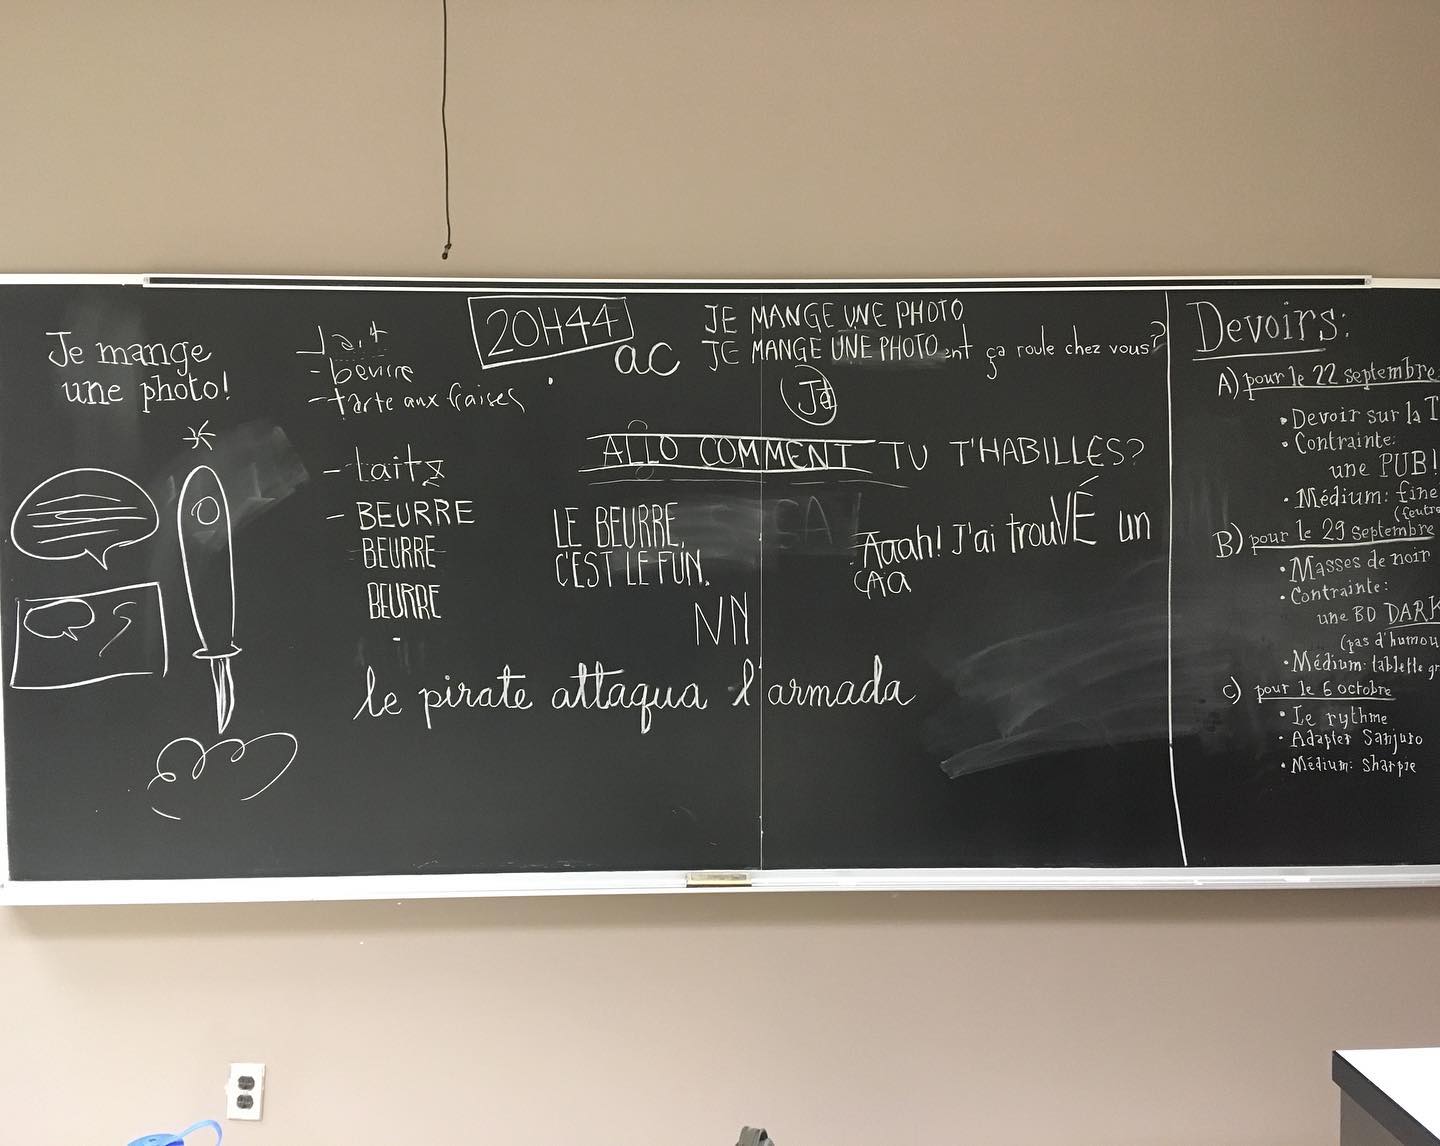 Je mange
une photo!
- Lait
- beurre
- tarte aux fraises
- Lait
- BEURRE
BEURRE
BEURRE
20H44
ac
JE MANGE UNE PHOTO
JE MANGE UNE PHOTO ent ça roule chez vous?
ALLO COMMENT TU T'HABILLES?
LE BEURRE,
C'EST LE FUN.
NN
Aaah! J'ai trouVÉ un
CAa
le pirate attaqua l'armada
Devoirs:
A) pour le 22 septembre
• Devoir sur la T
• Contrainte:
une PUB!
• Médium: fine
(feutre
B) pour le 29 septembre
• Masses de noir
• Contrainte:
une BD DARK
(pas d'humou
• Médium: tablette gr
C) pour le 6 octobre
• Le rythme
• Adapter Sanjuro
• Médium: Sharpie